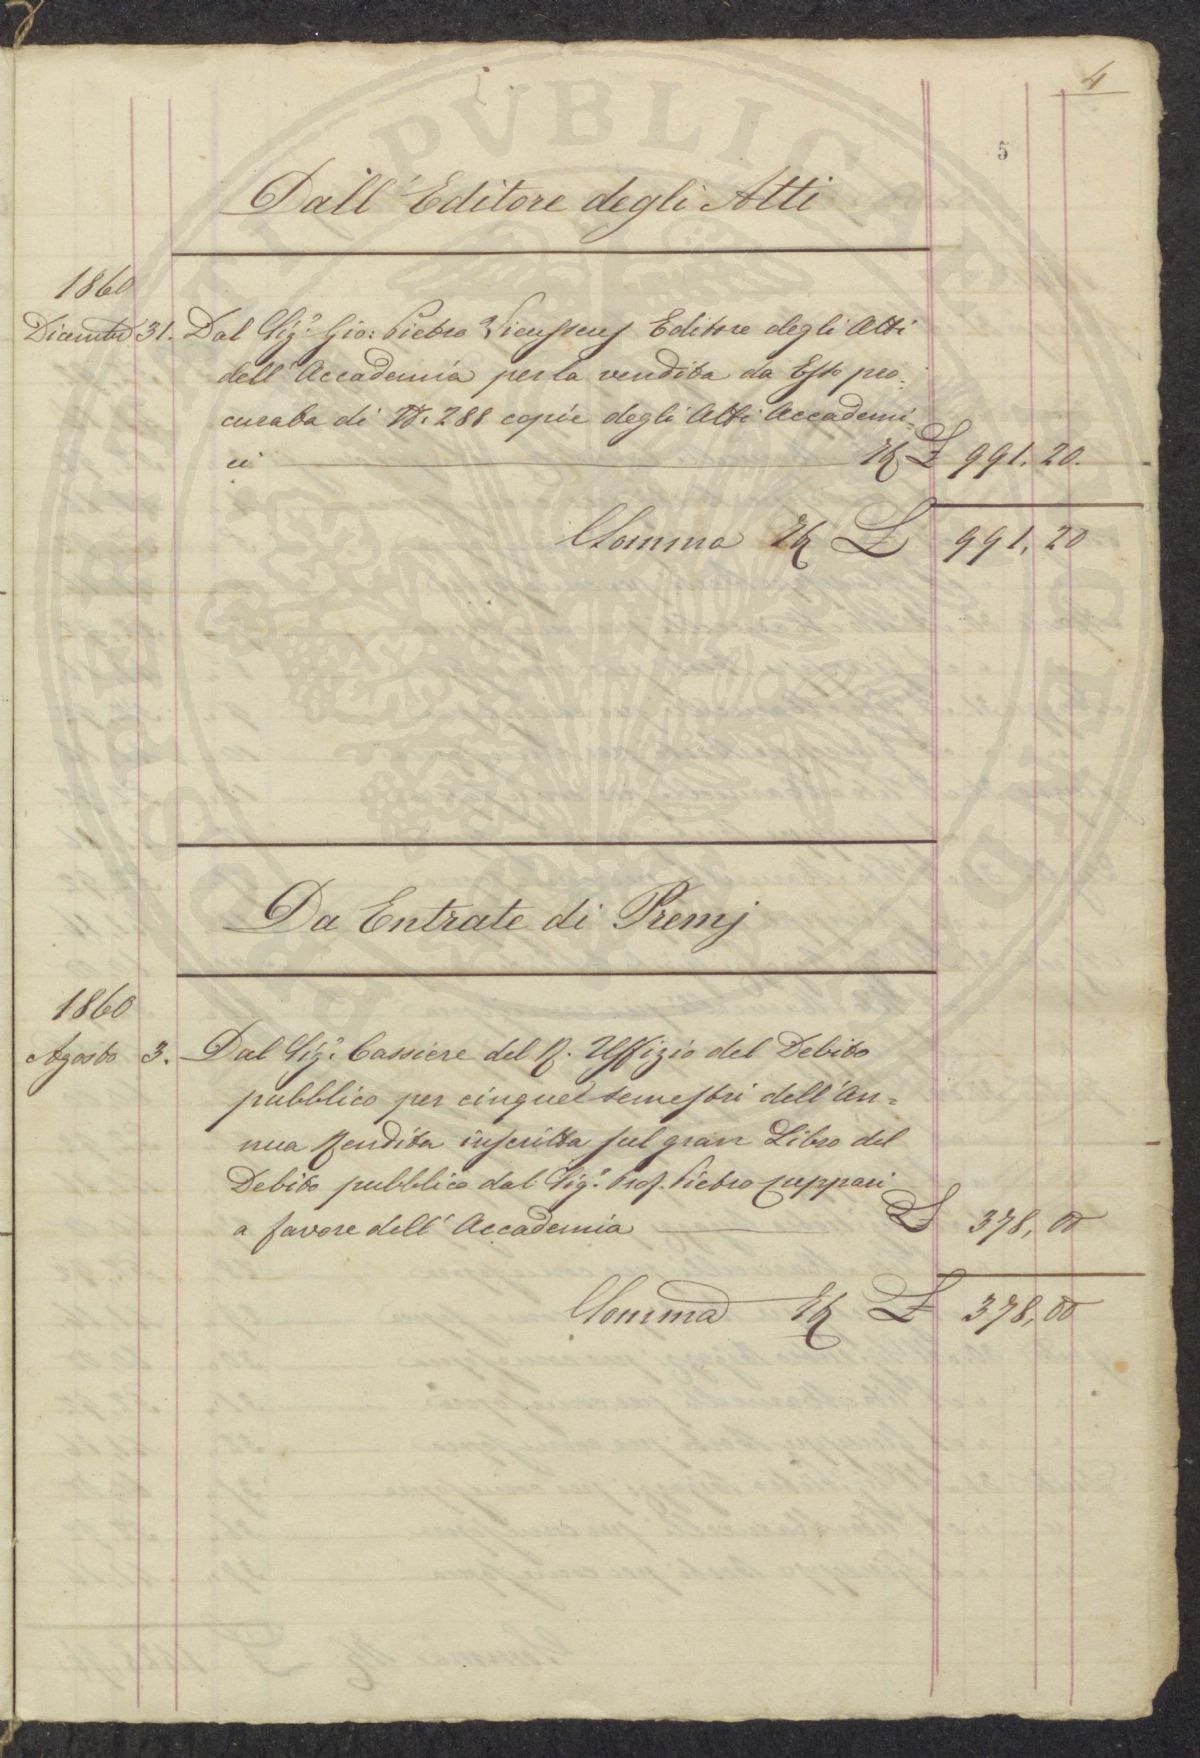 4
5
Dall' Editore degli Atti
1860
Dicembre 31. Dal Sig.r Gio: Pietro Vieusseux Editore degli Atti
dell' Accademia per la vendita da Esso pro=
curata di N. 288 copie degli Atti Accademi=
ci £ 991. 20.
Somma £ 991, 20
Da Entrate di Premj
1860
Agosto 3. Dal Sig.r Cassiere del R. Uffizio del Debito
pubblico per cinque semestri dell' An=
nua Rendita inscritta sul gran Libro del
Debito pubblico dal Sig.r Prof. Pietro Cuppari
a favore dell' Accademia £ 378, 00
Somma £ 378, 00